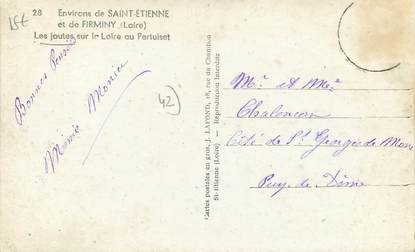 15€
28 Environs de SAINT-ÉTIENNE
et de FIRMINY (Loire)
Les joutes sur la Loire au Pertuiset
Bonnes Pensées
Mimie Monier
42
Cartes postales en gros, J. LAFOND, 18, rue du Chambon
St-Etienne (Loire) — Reproduction Interdite
Mr et Mme
Chalencon
Cité de St Georges de Mons
Puy de Dôme